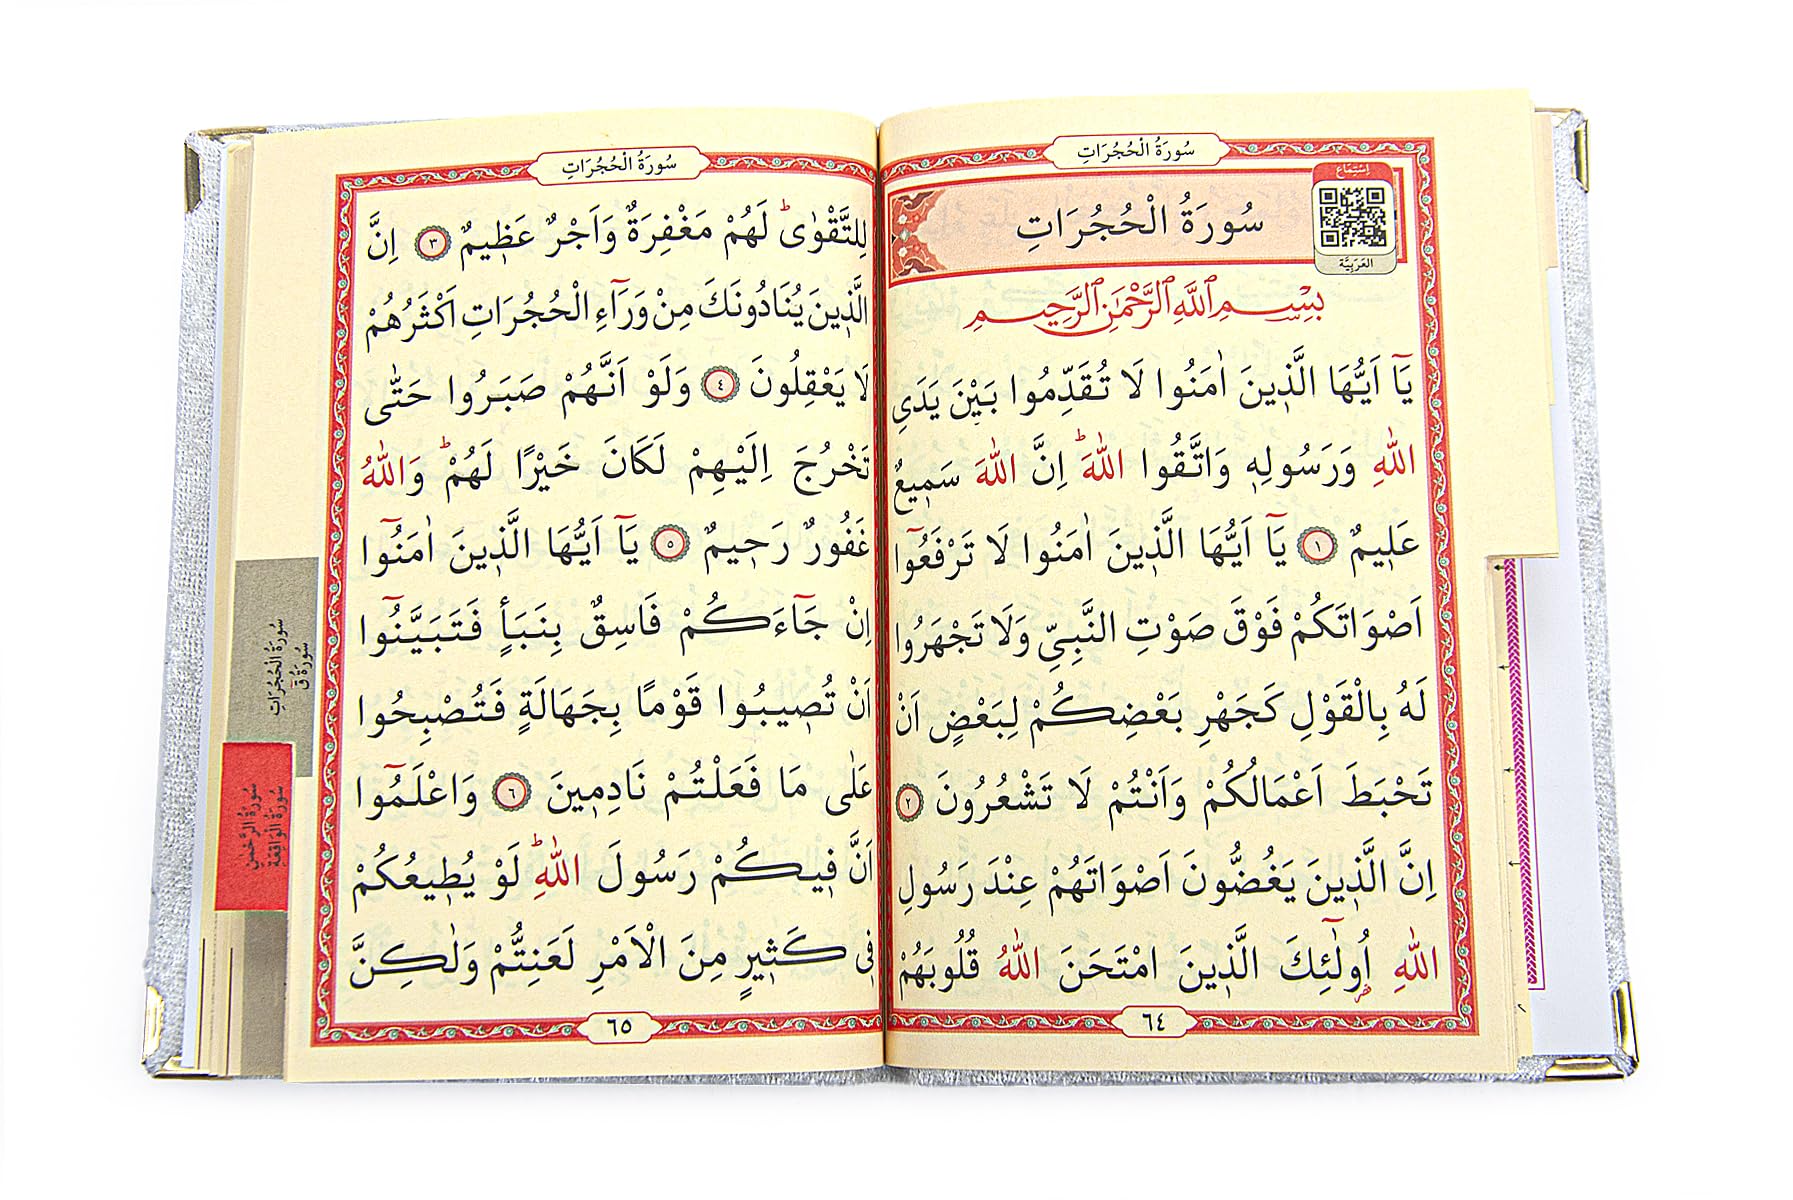 سُورَةُ الْحُجُرَاتِ
سُورَةُ الْحُجُرَاتِ
اِسْتِمَاع
العَرَبِيَّة
بِسْمِ اللَّهِ الرَّحْمَٰنِ الرَّحِيمِ
يَٓا اَيُّهَا الَّذ۪ينَ اٰمَنُوا لَا تُقَدِّمُوا بَيْنَ يَدَيِ
اللّٰهِ وَرَسُولِه۪ وَاتَّقُوا اللّٰهَۜ اِنَّ اللّٰهَ سَم۪يعٌ
عَل۪يمٌ ﴿١﴾ يَٓا اَيُّهَا الَّذ۪ينَ اٰمَنُوا لَا تَرْفَعُٓوا
اَصْوَاتَكُمْ فَوْقَ صَوْتِ النَّبِيِّ وَلَا تَجْهَرُوا
لَهُ بِالْقَوْلِ كَجَهْرِ بَعْضِكُمْ لِبَعْضٍ اَنْ
تَحْبَطَ اَعْمَالُكُمْ وَاَنْتُمْ لَا تَشْعُرُونَ ﴿٢﴾
اِنَّ الَّذ۪ينَ يَغُضُّونَ اَصْوَاتَهُمْ عِنْدَ رَسُولِ
اللّٰهِ اُو۬لٰٓئِكَ الَّذ۪ينَ امْتَحَنَ اللّٰهُ قُلُوبَهُمْ
٦٤
سُورَةُ الْحُجُرَاتِ
لِلتَّقْوٰىۜ لَهُمْ مَغْفِرَةٌ وَاَجْرٌ عَظ۪يمٌ ﴿٣﴾ اِنَّ
الَّذ۪ينَ يُنَادُونَكَ مِنْ وَرَٓاءِ الْحُجُرَاتِ اَكْثَرُهُمْ
لَا يَعْقِلُونَ ﴿٤﴾ وَلَوْ اَنَّهُمْ صَبَرُوا حَتّٰى
تَخْرُجَ اِلَيْهِمْ لَكَانَ خَيْرًا لَهُمْۜ وَاللّٰهُ
غَفُورٌ رَح۪يمٌ ﴿٥﴾ يَٓا اَيُّهَا الَّذ۪ينَ اٰمَنُٓوا
اِنْ جَٓاءَكُمْ فَاسِقٌ بِنَبَأٍ فَتَبَيَّنُٓوا
اَنْ تُص۪يبُوا قَوْمًا بِجَهَالَةٍ فَتُصْبِحُوا
عَلٰى مَا فَعَلْتُمْ نَادِم۪ينَ ﴿٦﴾ وَاعْلَمُٓوا
اَنَّ ف۪يكُمْ رَسُولَ اللّٰهِۜ لَوْ يُط۪يعُكُمْ
ف۪ي كَث۪يرٍ مِنَ الْاَمْرِ لَعَنِتُّمْ وَلٰكِنَّ
٦٥
سُورَةُ الْحُجُرَاتِ
سُورَةُ قٓ
سُورَةُ الرَّحْمٰنِ
سُورَةُ الْوَاقِعَةِ